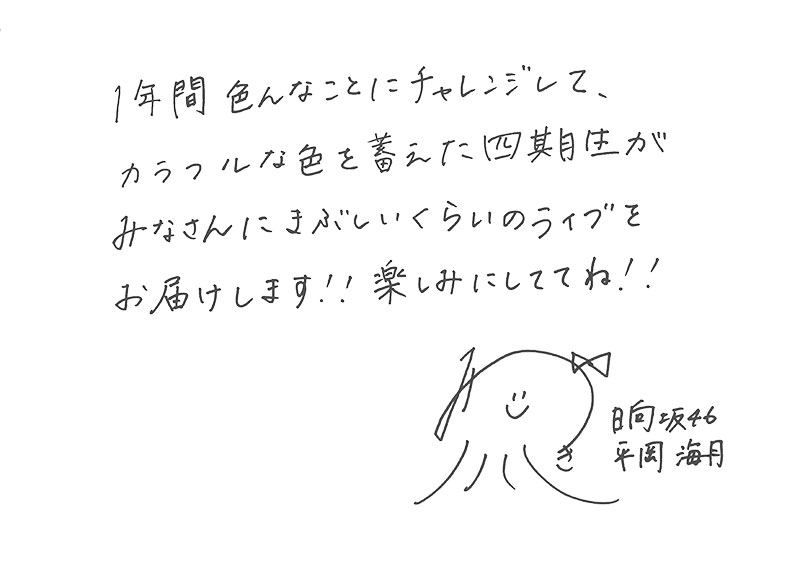 1年間 色んなことにチャレンジして、
カラフルな色を蓄えた四期生が
みなさんにまぶしいくらいのライブを
お届けします!! 楽しみにしててね!!
み
き
日向坂46
平岡 海月